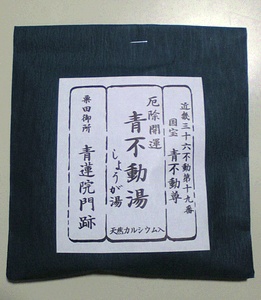 近畿三十六不動第十九番
国宝 青不動尊
厄除開運
青不動湯
しょうが湯
天然カルシウム入
粟田御所
青蓮院門跡